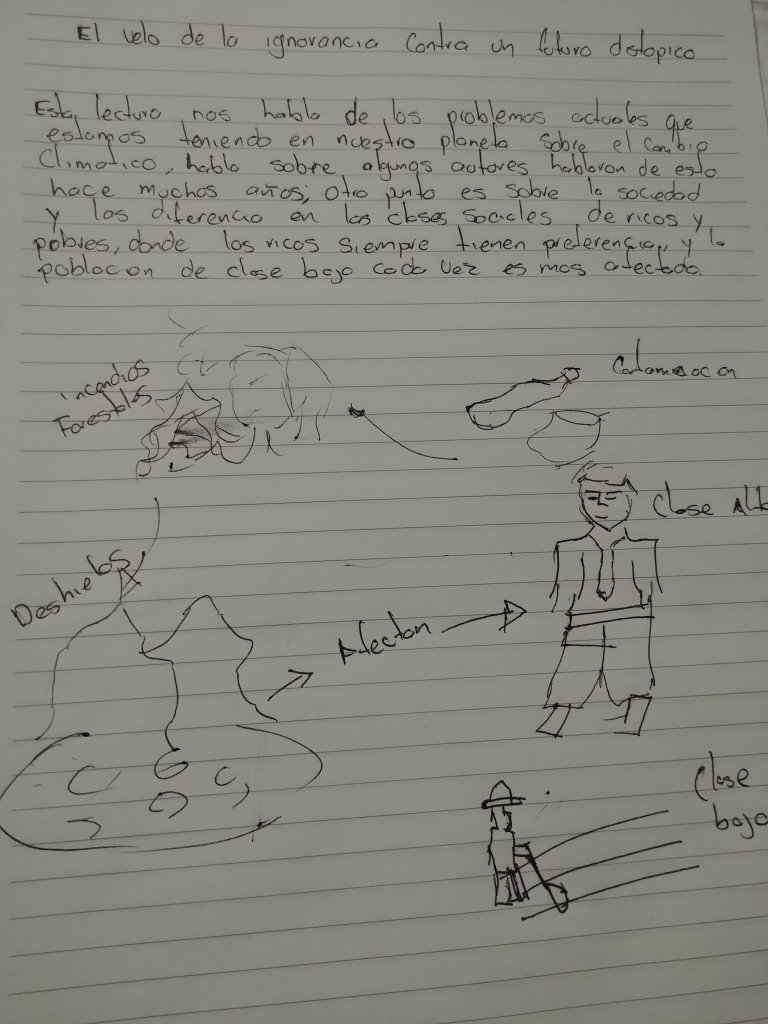 El velo de la ignorancia contra un futuro distopico
Esta lectura nos habla de los problemas actuales que
estamos teniendo en nuestro planeta sobre el cambio
climatico, habla sobre algunos autores hablaron de esto
hace muchos años; otro punto es sobre la sociedad
y las diferencia en las clases sociales de ricos y
pobres, donde los ricos siempre tienen preferencia, y la
poblacon de clase baja cada vez es mas afectada.
incendios
Forestales
Clase Alta
Deshielos
Afectan
Clase
baja